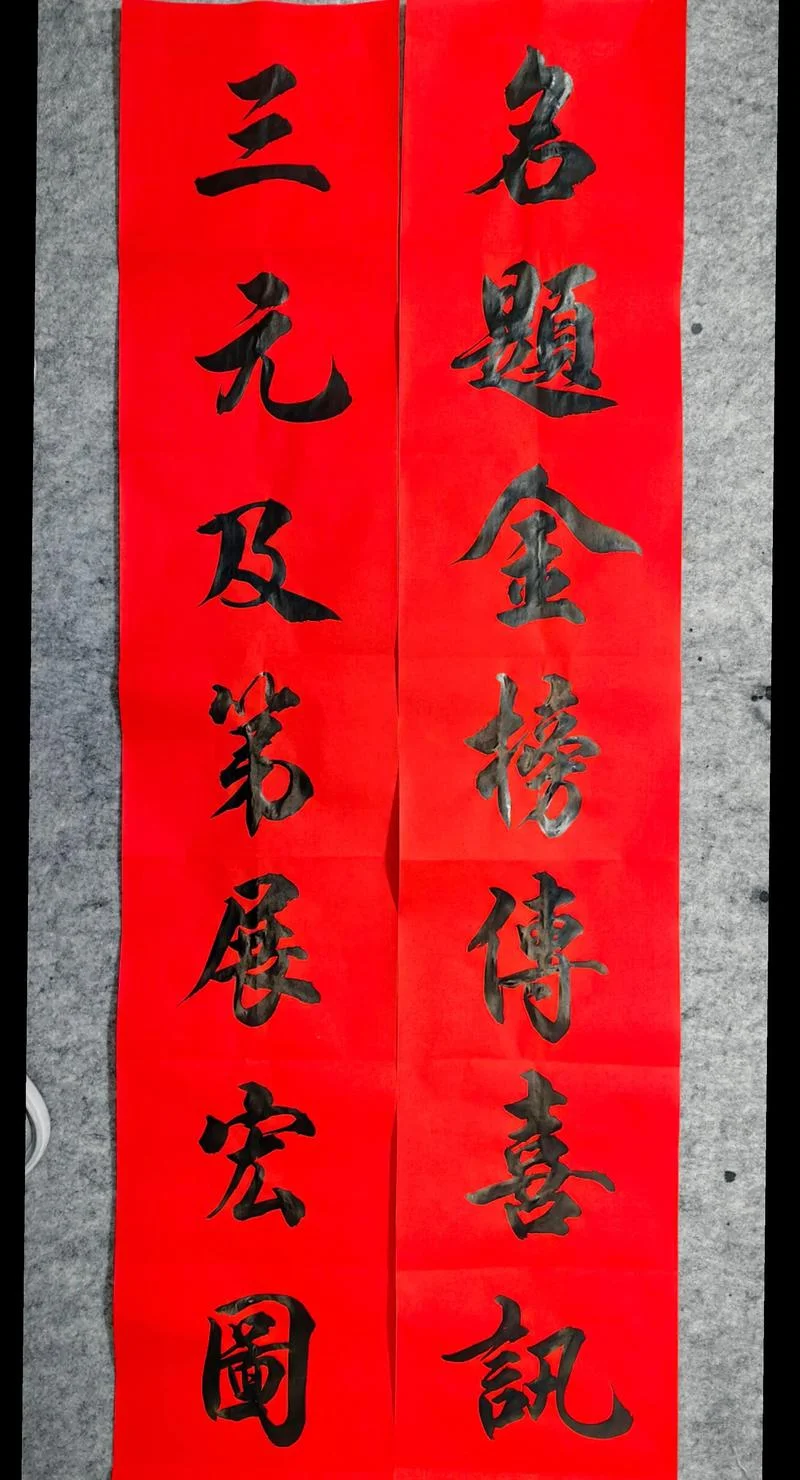 名題金榜傳喜訊
三元及第展宏圖